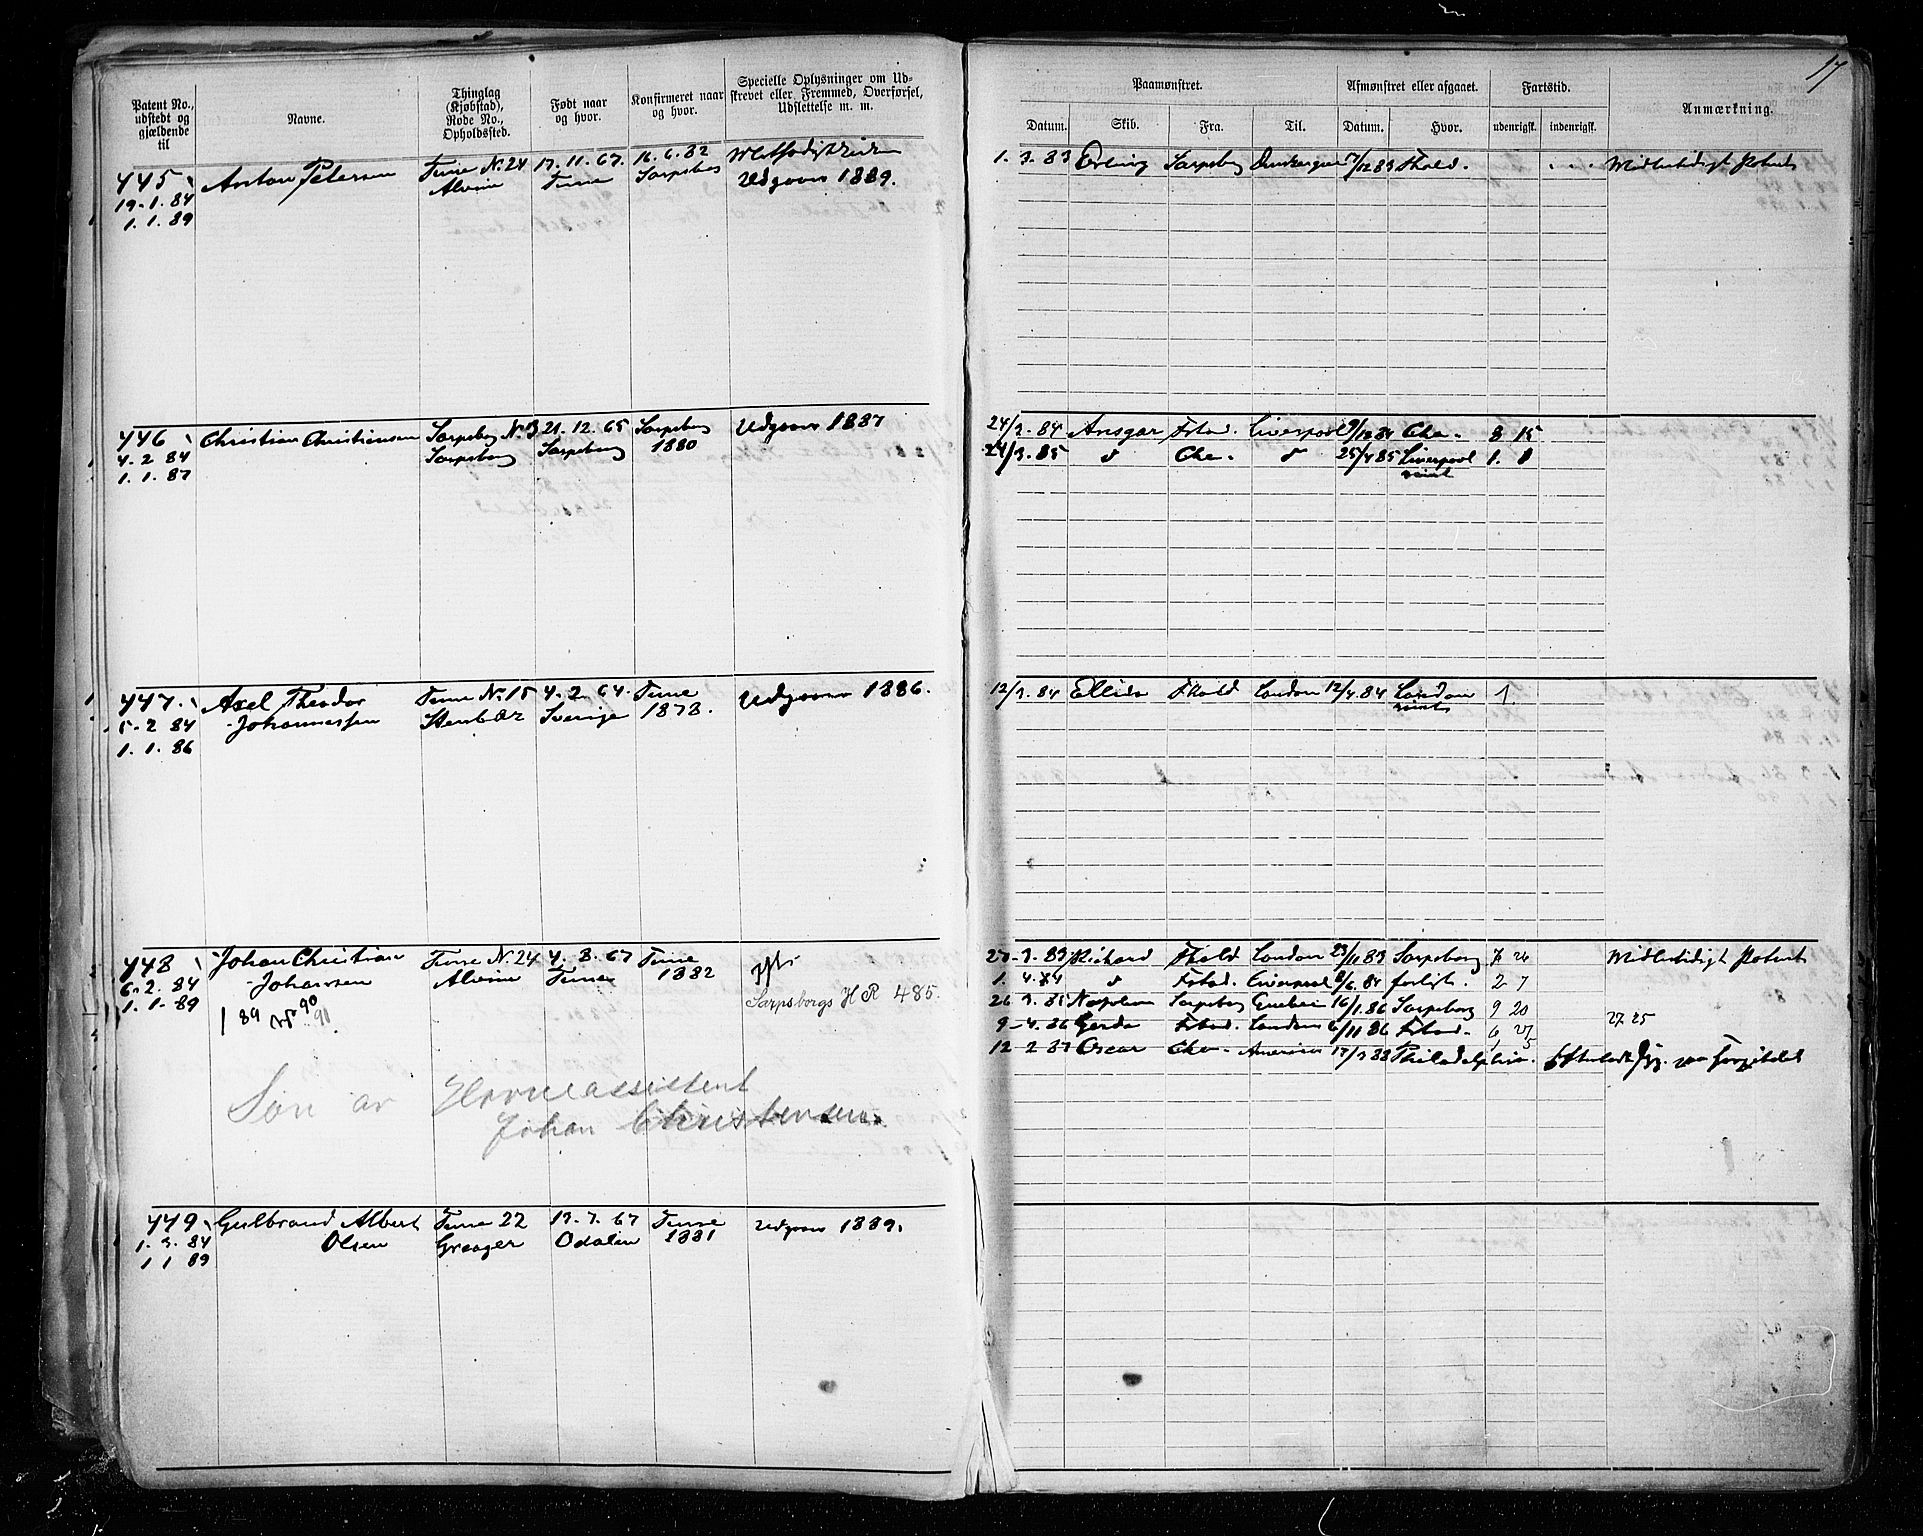 17
Patent No., udstedt og gjældende til
Navne.
Thinglag (Kjøbstad), Rode No., Opholdssted.
Født naar og hvor.
Konfirmeret naar og hvor.
Specielle Oplysninger om Udskrevet eller Fremmed, Overførsel, Udslettelse m. m.
Paamønstret.
Afmønstret eller afgaaet.
Fartstid.
Anmærkning.
Datum. Skib. Fra. Til. Datum. Hvor. udenrigsk. indenrigsk.
445 Anton Petersen Tune No. 24 17. 11. 67. 16. 6. 82
19. 1. 84 Alvim Tune Sarpsborg Udgaar 1889.
1. 1. 89
1. 3. 83 Erling Sarpsborg 7/12 83 Fhald. Midlertidigt Patent
446 Christian Christiansen Sarpsborg No. 13 21. 12. 65 Sarpsborg Udgaar 1887
4. 2 84 Sarpsborg Sarpsborg 1880
1. 1. 87
24/3. 84 Ansgar Fstad. Liverpool 9/12 84 Cha. 8 15
24/3. 85 Cha. 25/4 85 Liverpool 1. 1
rømt
447. Axel Theodor Tune No. 15 4. 2. 64. Tune Udgaar 1886.
5. 2 84 Johannessen Stenbær Sverige 1878.
1. 1. 86
12/3. 84 Ellida Fhald London 12/4. 84 London 1.
rømt
448 Johan Christian Tune No. 24 4. 8. 67 Tune
6. 2. 84 Johansen Alvim Tune 1882 Sarpsborgs H R 485.
1. 1. 89
1 89 90
91.
Søn av Havneassistent
Johan Christensen.
27. 3. 83 Richard Fhald London 23/11 83 Sarpsborg 7 26 Midlertidigt Patent
1. 4. 84 Fstad. Liverpool 8/6. 84 forligt. 2 7
26 3. 85 Napoleon Sarpsborg 16/1. 86 Sarpsborg 9 20
9. 4. 86 Gerda Fstad. London 6/11 86 Fstad. 6 27 27 25
12. 2 87 Oscar Cha. Amerika 17/3 88 Philadelphia. Efterladt syg paa Hospitalet
449 Gulbrand Albert Tune 22 19. 7. 67 Tune Udgaar 1889.
1. 3. 84 Olsen Greaager Odalen 1881
1 1 89